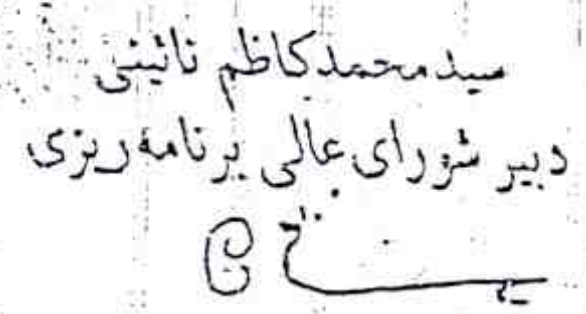 سیدمحمدکاظم نائینی
دبیر شورای عالی برنامه‌ریزی